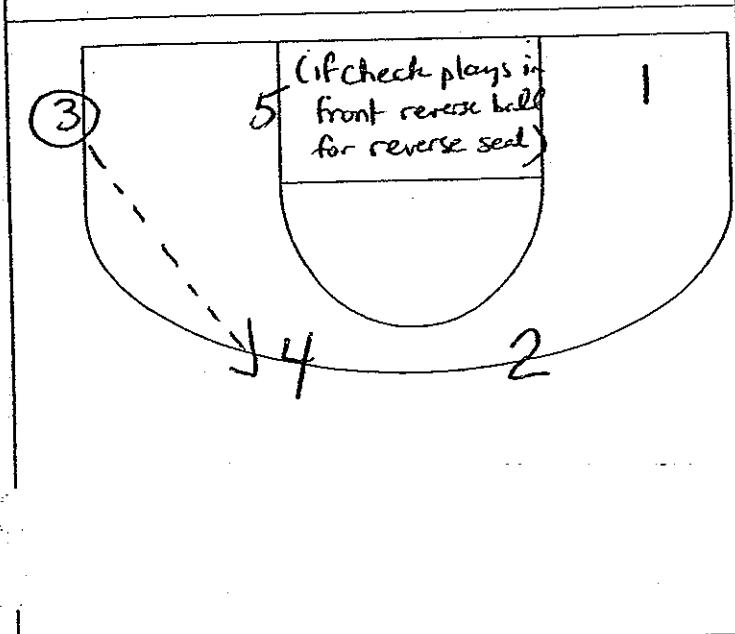 (if check plays in
3 5 front reverse ball 1
for reverse seal)
4 2